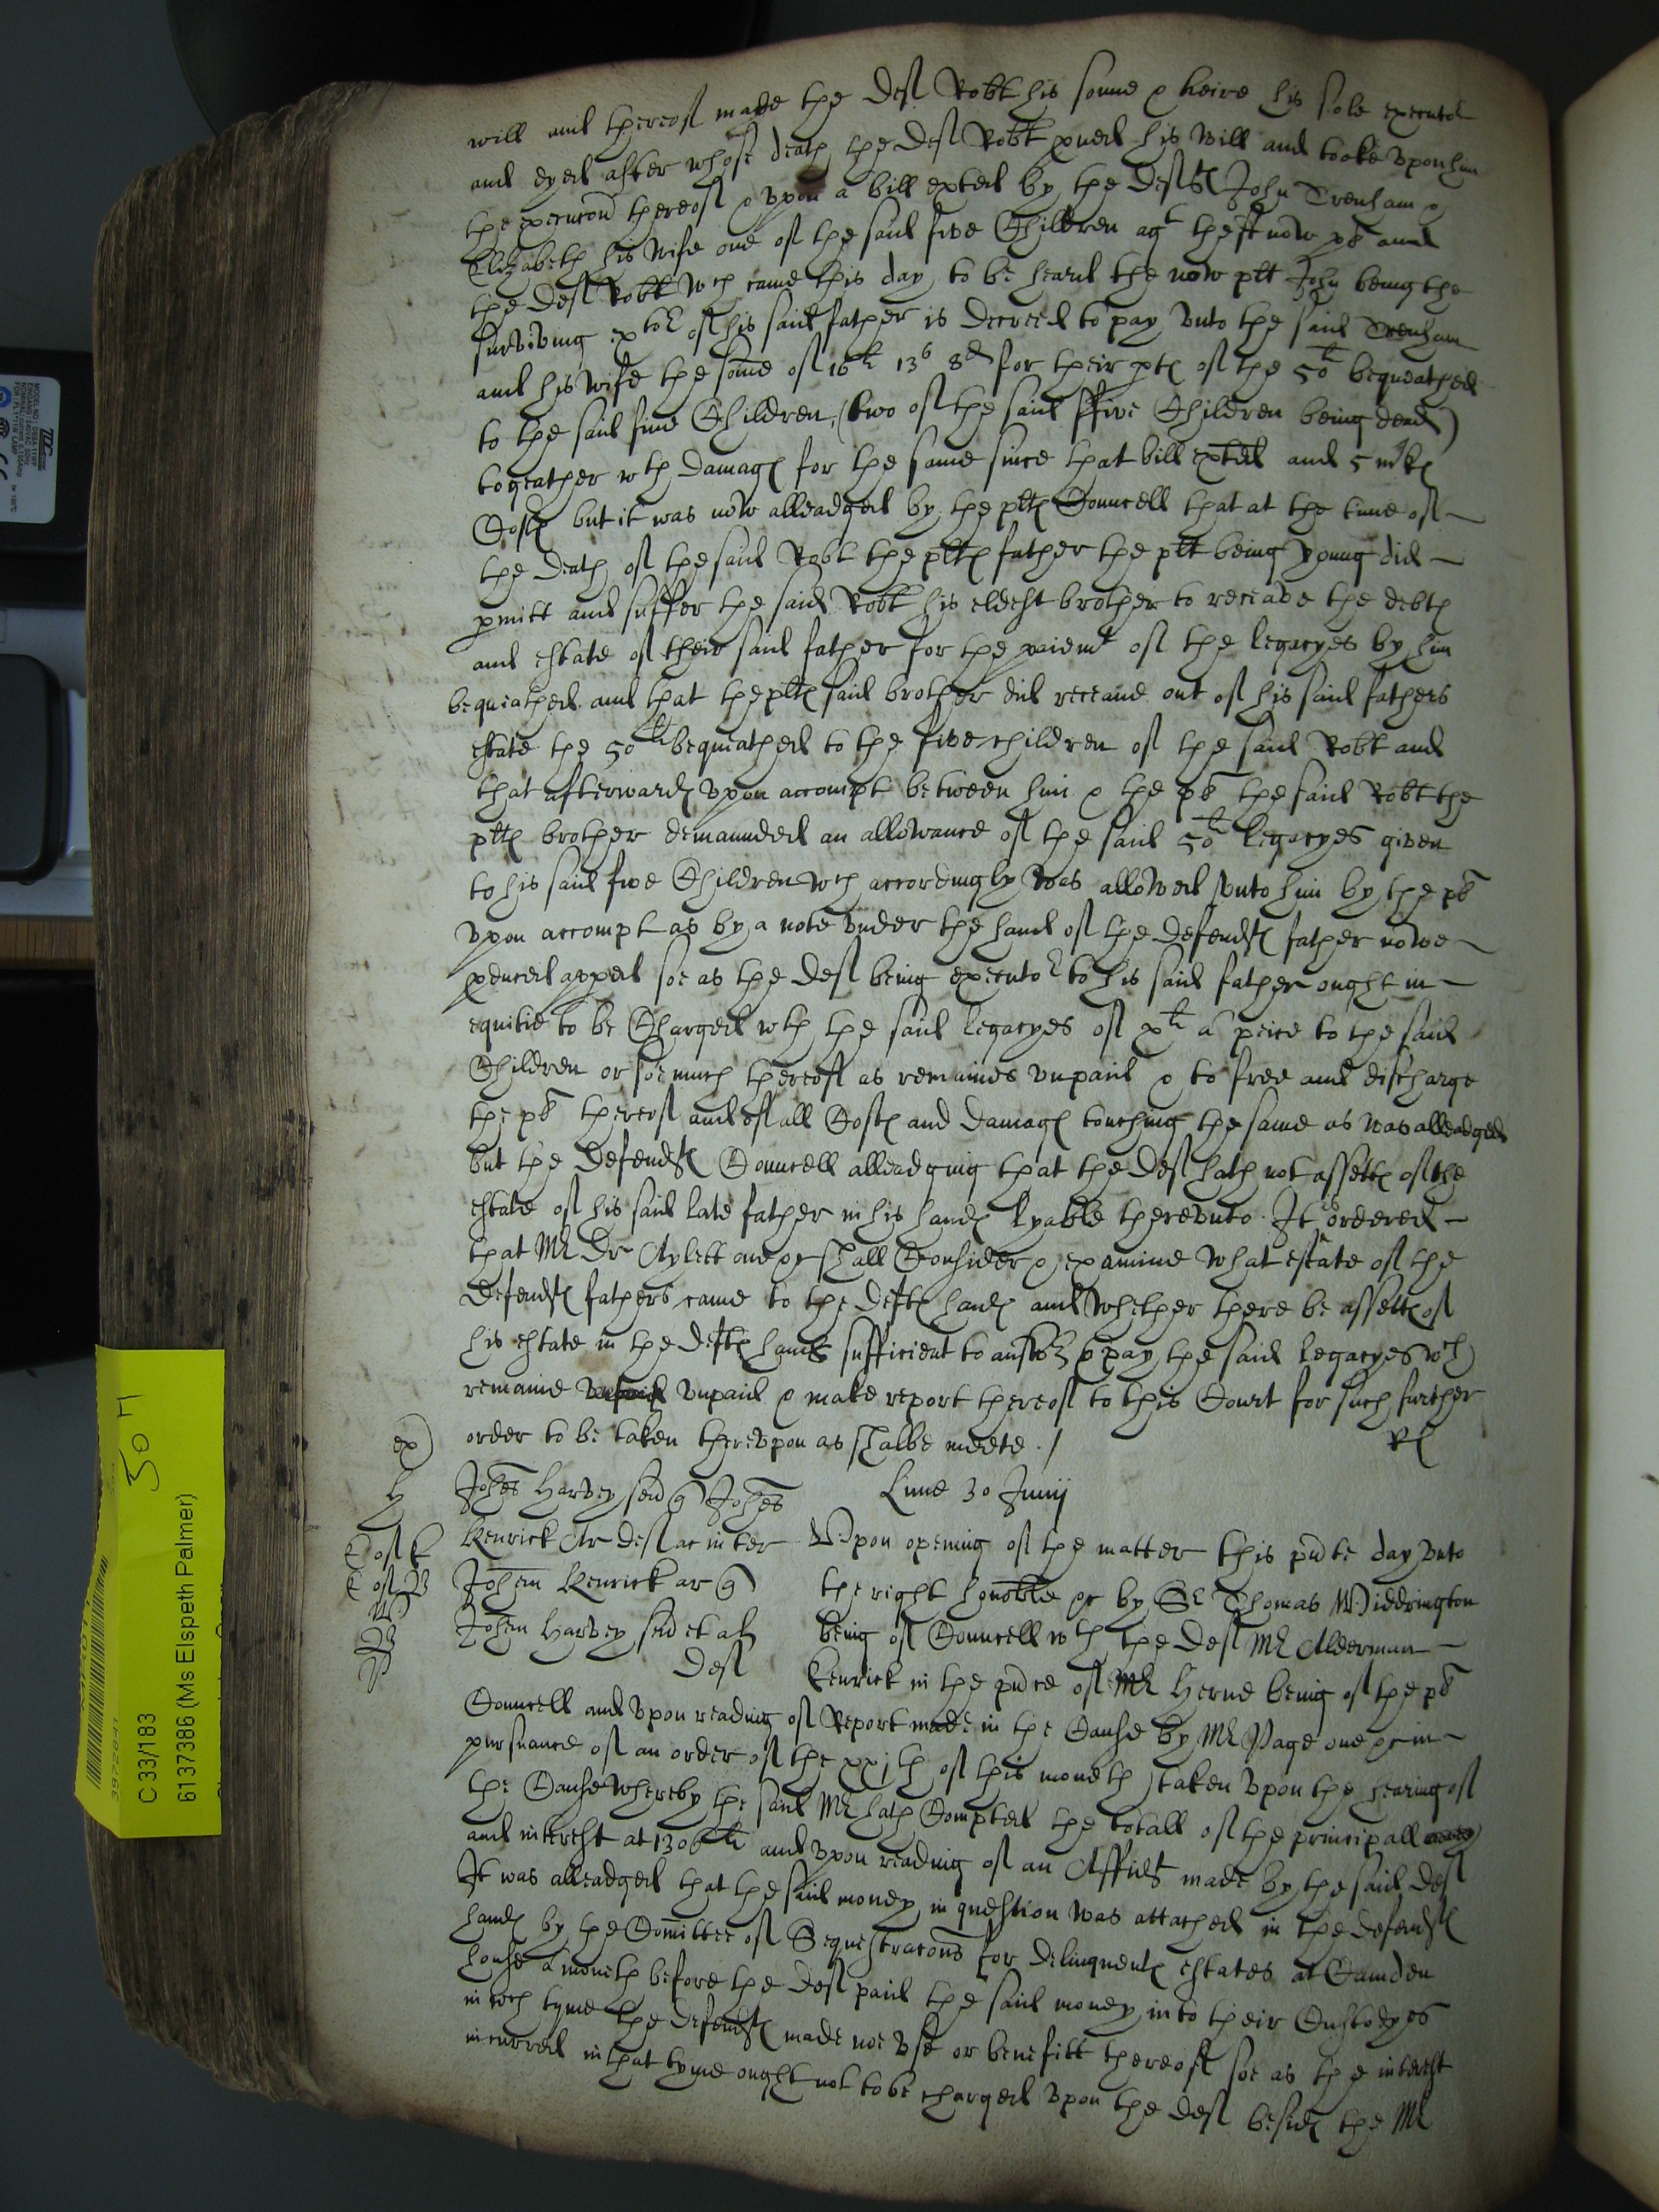 will and thereof made the Def Robt his sonne & heire his sole executor
and dyed after whose death the Def Robt pued his will and tooke vpon him
the execucon thereof & vpon a bill exted by the Defts John Trenham &
Elizabeth his wife one of the said five Children agt the now pt and
the Def Robt wch came this day to be heard the now plt John being the
surviving extor of his said father is decreed to pay vnto the said Trenham
and his wife the some of 16li 13s 8d for their pte of the 50li bequeathed
to the said five Children, (two of the said ffive Children being dead)
togeather wth damages for the same since that bill exted and 5 mrkes
Costes but it was now alleadged by the pltes Councell that at the time of
the death of the said Robt the pltes father the plt being young did
pmitt and suffer the said Robt his eldest brother to receave the debtes
and estate of their said father for the paiemt of the legacyes by him
bequeathed and that the pltes said brother did receaue out of his said fathers
estate the 50li bequeathed to the five children of the said Robt and
that afterwardes vpon accompt between him & the pt the said Robt the
pltes brother demaunded an allowance of the said 50li legacyes given
to his said five Children wch accordingly was allowed vnto him by the pt
vpon accompt as by a note vnder the hand of the Defendtes father nowe
pduced apped soe as the Def being executor to his said father ought in
equitie to be Charged wth the said legacyes of xli a peice to the said
Children or soe much thereof as remaines vnpaid & to free and discharge
the pt thereof and of all Costes and damages touching the same as was alleadged
but the Defendtes Councell alleadging that the Def hath not assettes of the
estate of his said late father in his handes lyable therevnto. It is ordered
that Mr Dr Aylett one &c shall Consider & examine what estate of the
Defendtes fathers came to the Deftes handes and whether there be assettes of
his estate in the Deftes hands sufficient to answer & pay the said legacyes wch
remaine vnpaid & make report thereof to this Court for such further
order to be taken therevpon as shalbe meete ./
ex
H
Johes Harvey sen q Johes
Lune 30 Junij
Kenrick Ar def ac inter
Vpon opening of the matter this pnte day vnto
Johem Kenrick ar q
the right honoble &c by Sr Thomas Widdrington
Johem Harvey sen et al
being of Councell wth the Def Mr Alderman
Def
Kenrick in the pnce of Mr Herne being of the pt
Councell and vpon reading of Report made in the Cause by Mr Page one &c in
pursuance of an order of the xxjth of this moneth taken vpon the hearing of
the Cause whereby the said Mr hath Compted the totall of the principall
and interest at 1306li and vpon reading of an Affidt made by the said Def
It was alleadged that the said money in question was attached in the defendtes
handes by the Comittee of Sequestracons for delinquentes estates at Camden
house a moneth before the Def paid the said money into their Custodyes
in wch tyme the defendtes made noe vse or benefitt thereof soe as the interest
incurred in that tyme ought not to be charged vpon the Def besides the Mr
50 H
C 33/183
6137386 (Ms Elspeth Palmer)